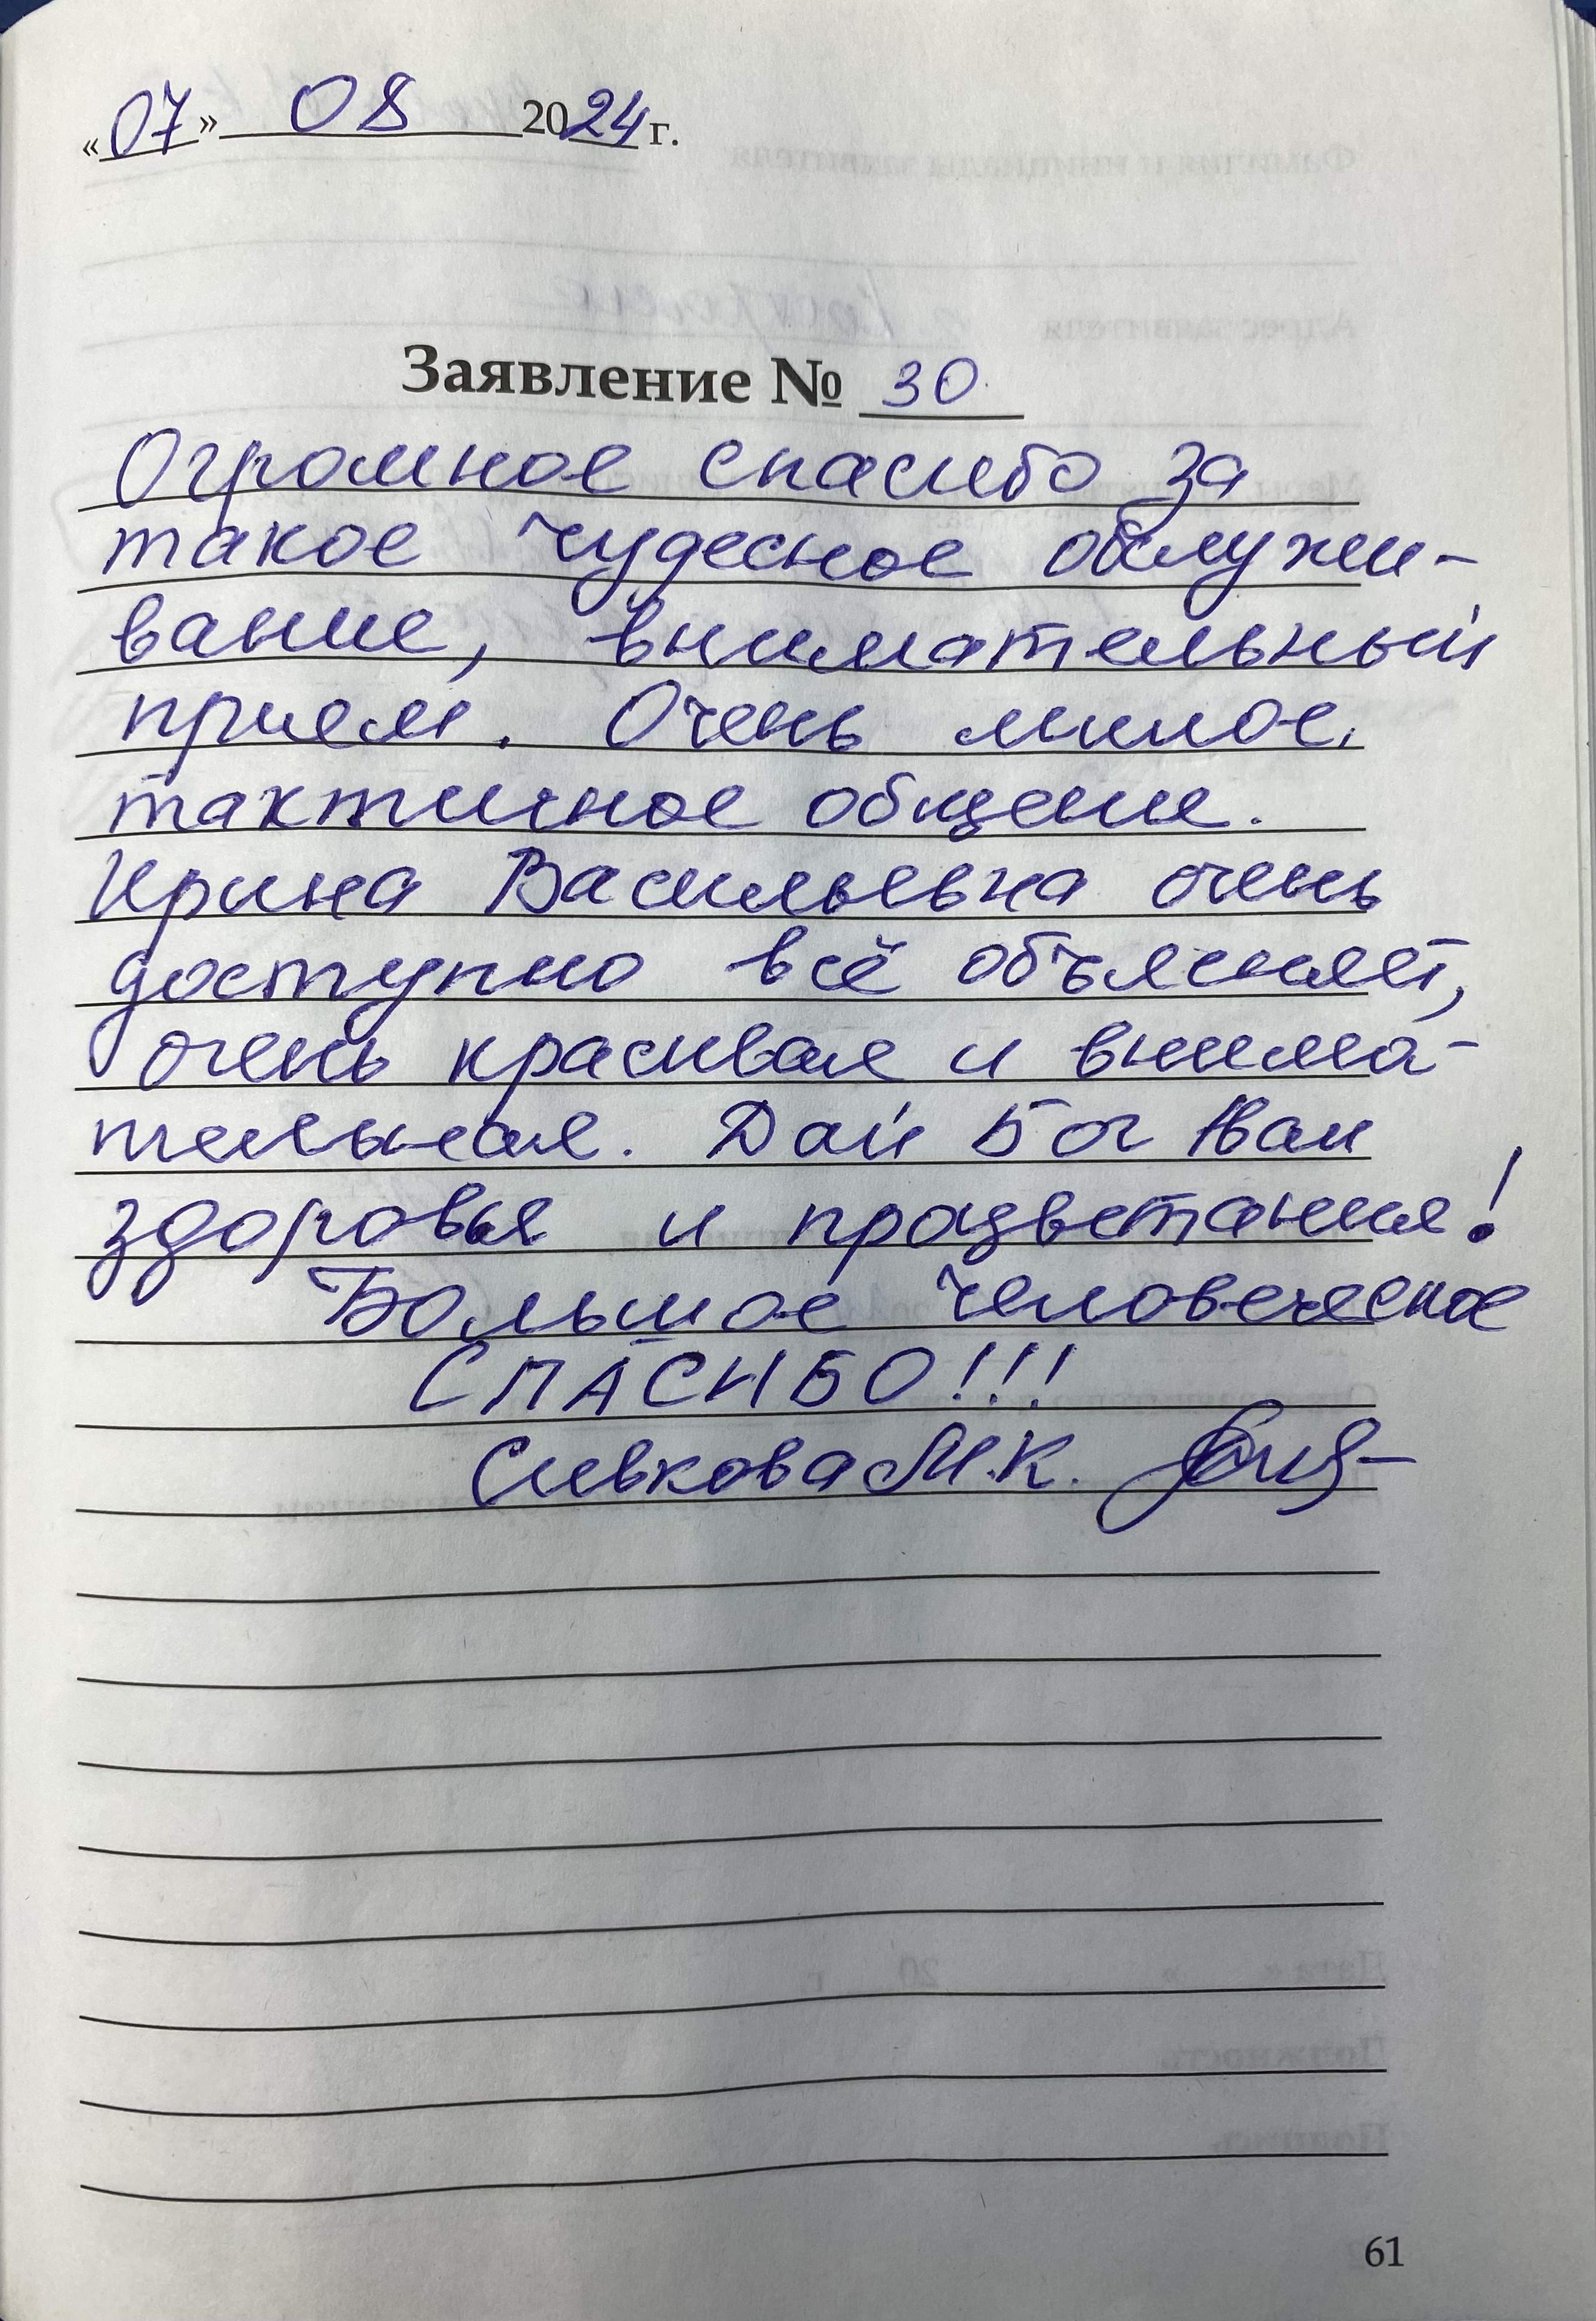 «07» 08 2024 г.
Заявление № 30
Огромное спасибо за
такое чудесное обслужи-
вание, внимательный
прием. Очень милое,
тактичное общение.
Ирина Васильевна очень
доступно всё объясняет,
очень красивая и внима-
тельная. Дай Бог Вам
здоровья и процветания!
Большое человеческое
СПАСИБО!!!
Сивкова М.К.
61